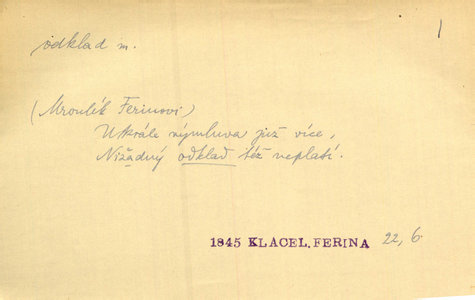 odklad m.
1
(Mroulík Ferinovi)
U krále výmluva již více,
Nižádný odklad též neplatí.
1845 KLACEL, FERINA 22, 6